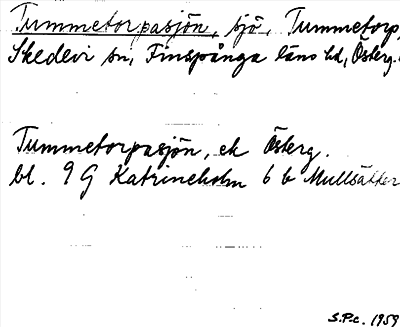 Tummetorpasjön, sjö, Tummetorp,
Skedevi sn, Finspånga läns hd, Österg.
Tummetorpasjön, ek Österg.
bl. 9 G Katrineholm 6 b Mullsäter
S.P.c. 1959